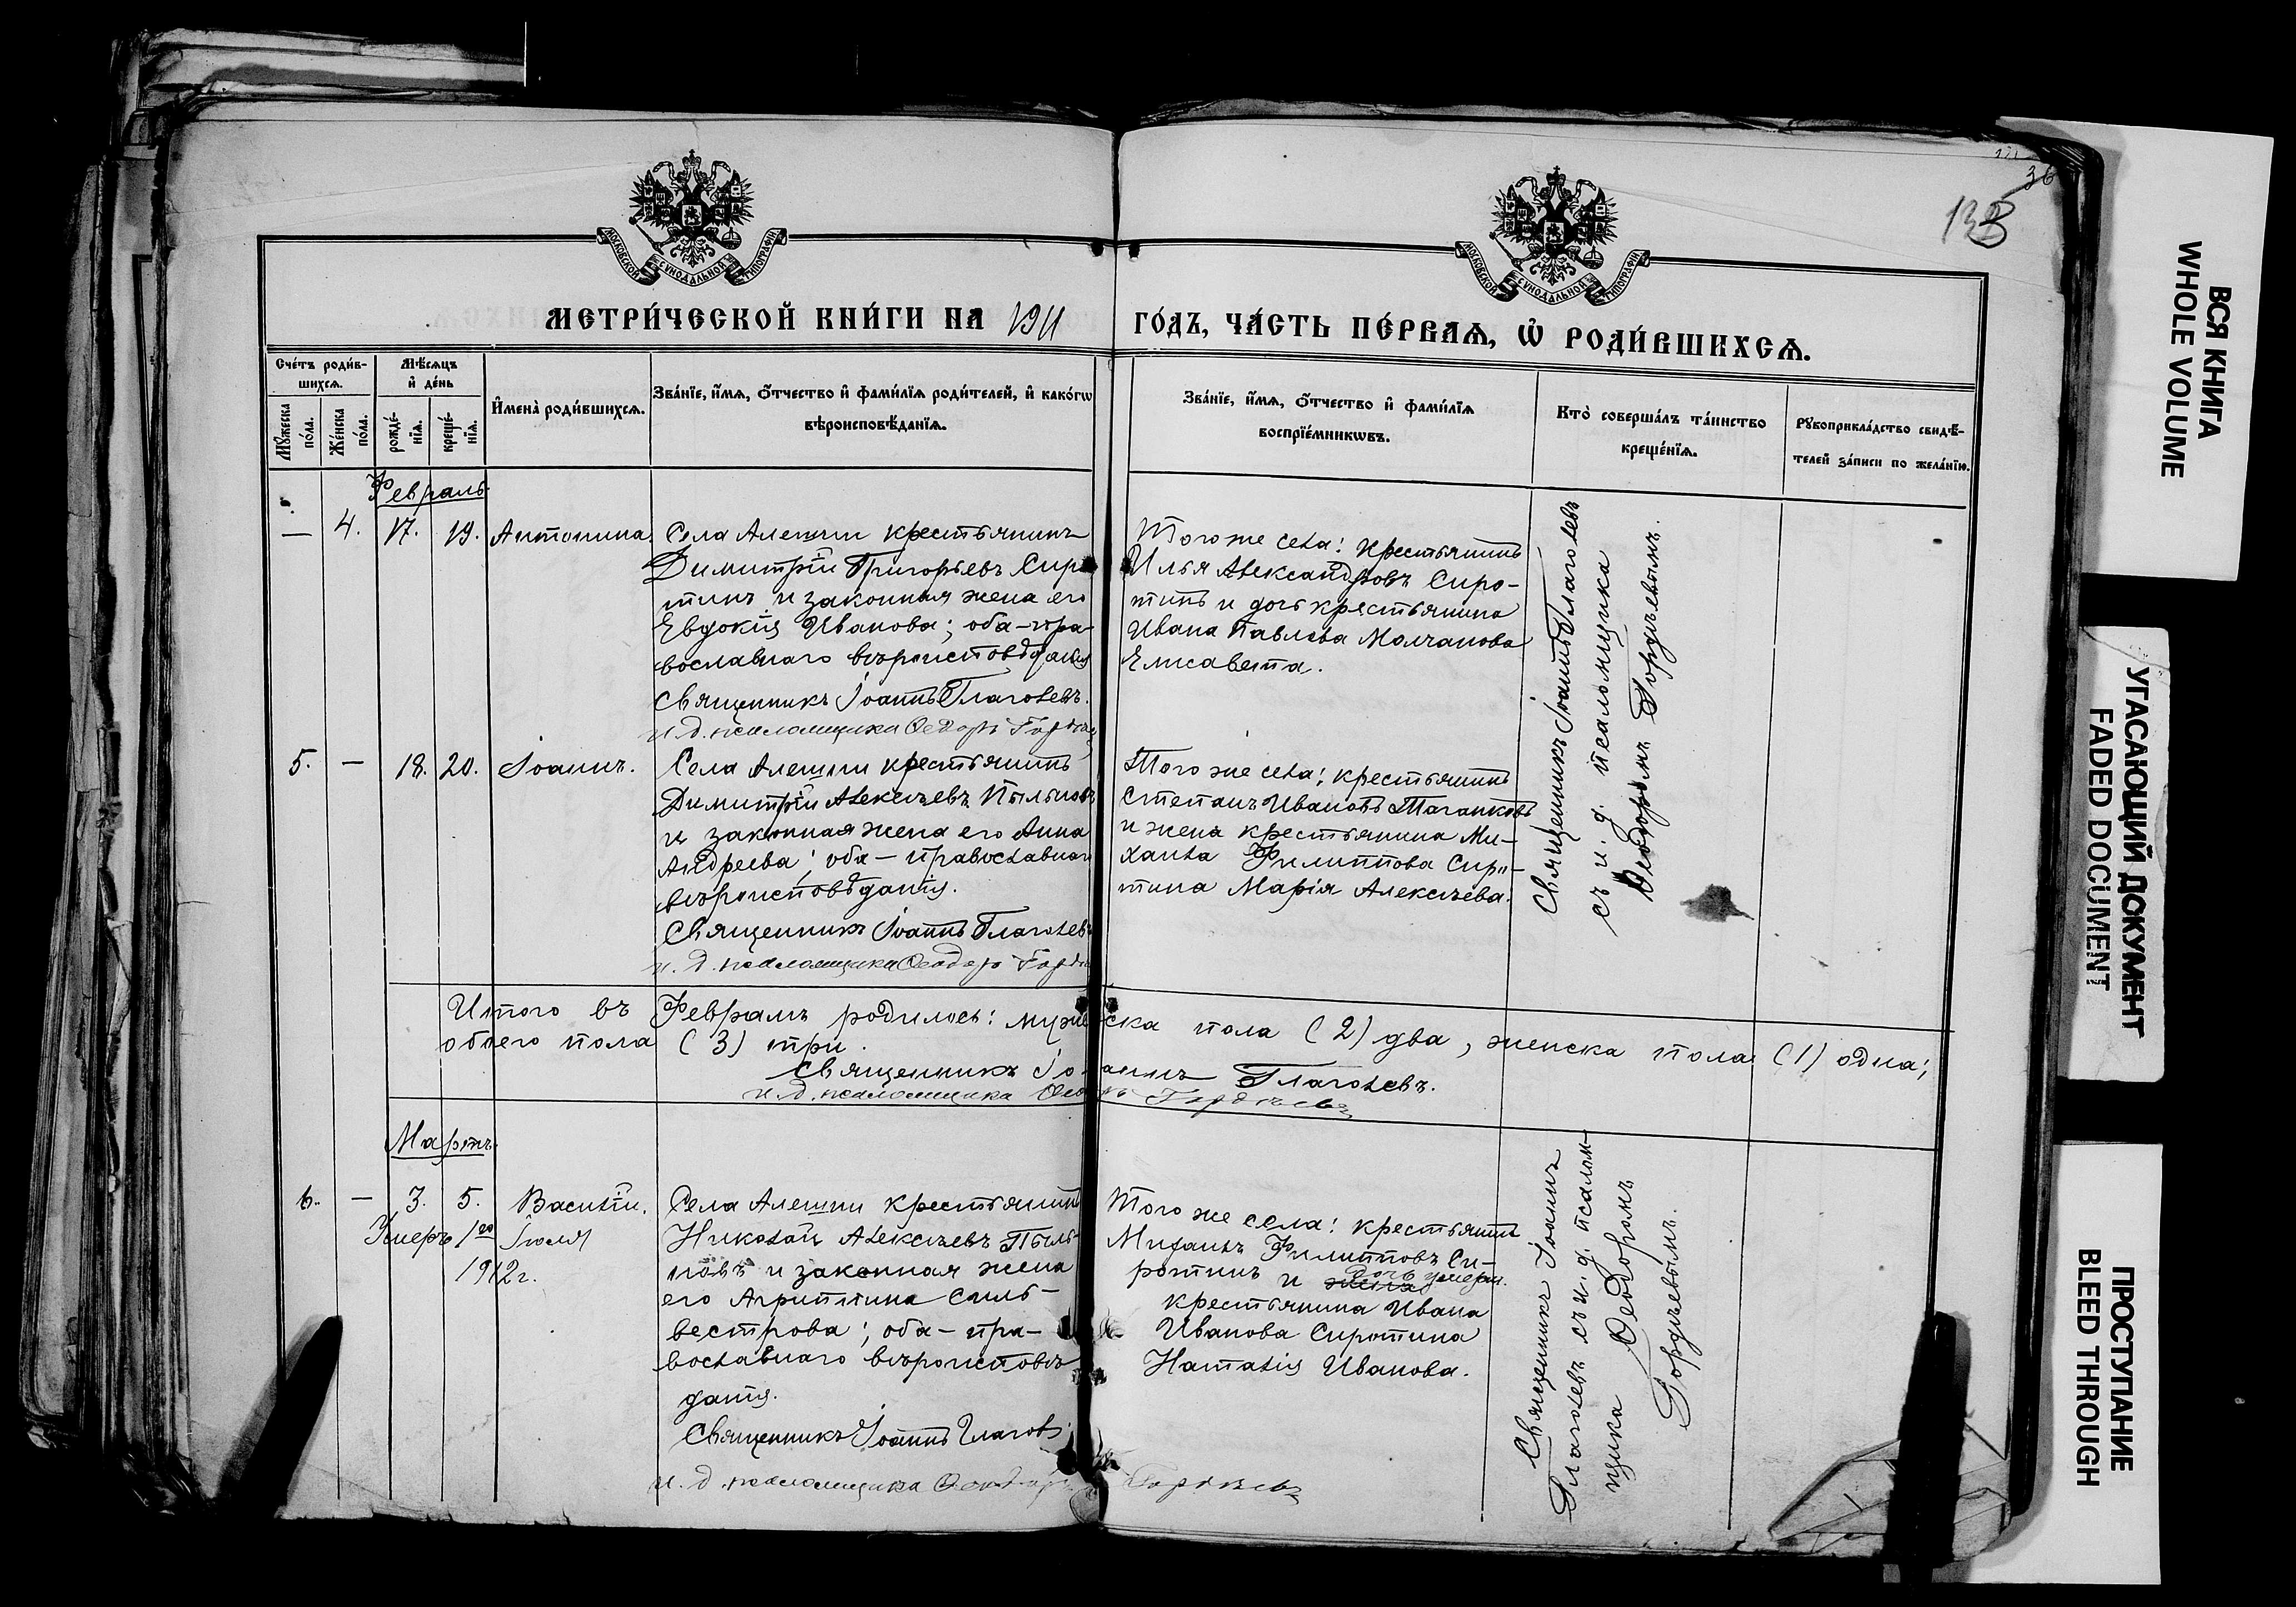 МОСКОВСКОЙ СУНОДАЛЬНОЙ ТИПОГРАФІИ
МОСКОВСКОЙ СУНОДАЛЬНОЙ ТИПОГРАФІИ
36
МЕТРИ́ЧЕСКОЙ КНИ́ГИ НА 1911
ГО́ДЪ, ЧА́СТЬ ПЕ́РВАѦ, Ѡ҆ РОДИ́ВШИХСѦ.
Сче́тъ роди́в-
шихсѧ.
Мѣ́сѧцъ
и҆ де́нь
Мꙋ́жеска
по́ла.
Же́нска
по́ла.
рожде́-
нїѧ.
креще́-
нїѧ.
И҆мена̀ роди́вшихсѧ.
Зва́нїе, и҆́мѧ, ѻ҆́тчество и҆ фами́лїѧ роди́телей, и҆ како́гѡ
вѣроисповѣ́данїѧ.
Зва́нїе, и҆́мѧ, ѻ҆́тчество и҆ фами́лїѧ
воспрїе́мникѡвъ.
Кто̀ соверша́лъ та́инство
креще́нїѧ.
Рꙋкоприкла́дство свидѣ́-
телей за́писи по жела́нїю.
Февраль
— 4. 17. 19. Антонина.
Села Алешни крестьянинъ
Димитрій Григорьевъ Сиро
тинъ и законная жена его
Евдокія Иванова; оба-пра-
вославнаго вѣроисповѣданія
Священникъ Іоаннъ Глаголевъ.
и. д. псаломщика Ѳеодоръ Гордѣев
Того же села: крестьянинъ
Илья Александровъ Сиро-
тинъ и дочь крестьянина
Ивана Павлова Молчанова
Елисавета.
Священникъ Іоаннъ Глаголевъ
съ и. д. псаломщика
Ѳеодоромъ Гордѣевымъ.
5. — 18. 20. Іоаннъ.
Села Алешни крестьянинъ
Димитрій Алексѣевъ Пыльновъ
и законная жена его Анна
Андреева; оба-православнаг
вѣроисповѣданія.
Священникъ Іоаннъ Глаголев
и. д. псаломщика Ѳеодоръ Гордѣ
Того же села: крестьянинъ
Степанъ Ивановъ Таганковъ
и жена крестьянина Ми-
хаила Филиппова Сиро-
тина Марія Алексѣева.
Итого въ Февралѣ родилось: мужеска пола (2) два, женска пола (1) одна;
обоего пола (3) три.
Священникъ Іоаннъ Глаголевъ.
и. д. псаломщика Ѳеодоръ Гордѣевъ
Мартъ
6. — 3. 5. Василій.
Умеръ 1го Іюля
1912 г.
Села Алешни крестьянинъ
Николай Алексѣевъ Пыль-
новъ и законная жена
его Агриппина Силь-
вестрова; оба-пра-
вославнаго вѣроисповѣ
данія.
Священникъ Іоаннъ Глаголев
и. д. псаломщика Ѳеодоръ Гордѣевъ
Того же села: крестьянинъ
Михаилъ Филипповъ Си-
ротинъ и жена дочь умерш.
крестьянина Ивана
Иванова Сиротина
Наталія Иванова.
Священникъ Іоаннъ
Глаголевъ съ и. д. псалом-
щика Ѳеодоромъ
Гордѣевымъ.
ВСЯ КНИГА
WHOLE VOLUME
УГАСАЮЩИЙ ДОКУМЕНТ
FADED DOCUMENT
ПРОСТУПАНИЕ
BLEED THROUGH